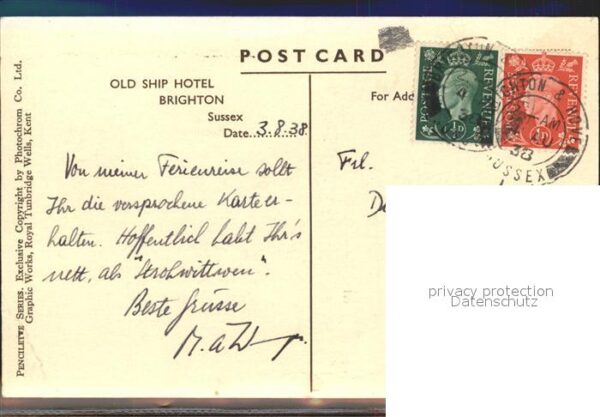 POST CARD
OLD SHIP HOTEL
BRIGHTON
Sussex
Date 3.8.38.
Von meiner Ferienreise sollt
Ihr die versprochene Karte er-
halten. Hoffentlich habt Ihr's
nett, als "Strohwittwen".
Beste Grüsse
For Add
Frl.
POSTAGE
REVENUE
½D
REVENUE
BRIGHTON &
HOVE
AM
38
SUSSEX
PENCILETTE SERIES. Exclusive Copyright by Photochrom Co. Ltd.
Graphic Works, Royal Tunbridge Wells, Kent
privacy protection
Datenschutz